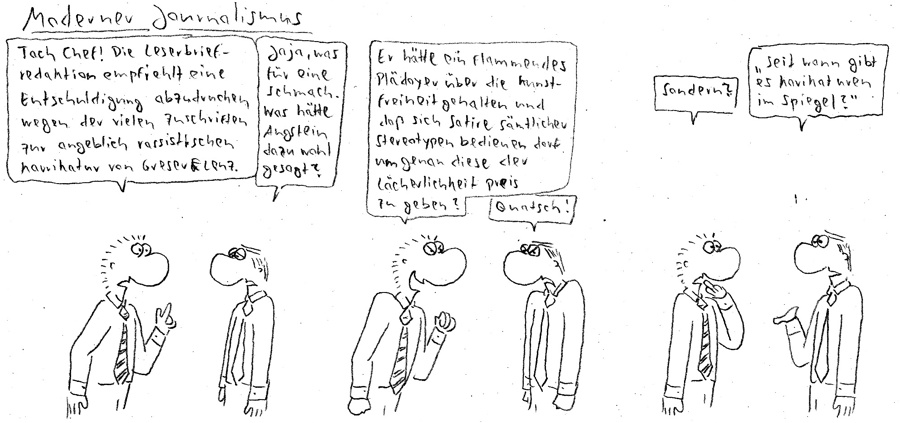 Moderner Journalismus
Tach Chef! Die Leserbrief-
redaktion empfiehlt eine
Entschuldigung abzudrucken
wegen der vielen Zuschriften
zur angeblich rassistischen
Karrikatur von Greser&Lenz.
Jaja, was
für eine
Schmach.
Was hätte
Augstein
dazu wohl
gesagt?
Er hätte ein flammendes
Plädoyer über die Kunst-
freiheit gehalten und
daß sich Satire sämtlicher
Stereotypen bedienen darf
um genau diese der
Lächerlichkeit preis
zu geben?
Quatsch!
Sondern?
„Seit wann gibt
es Karikaturen
im Spiegel?"